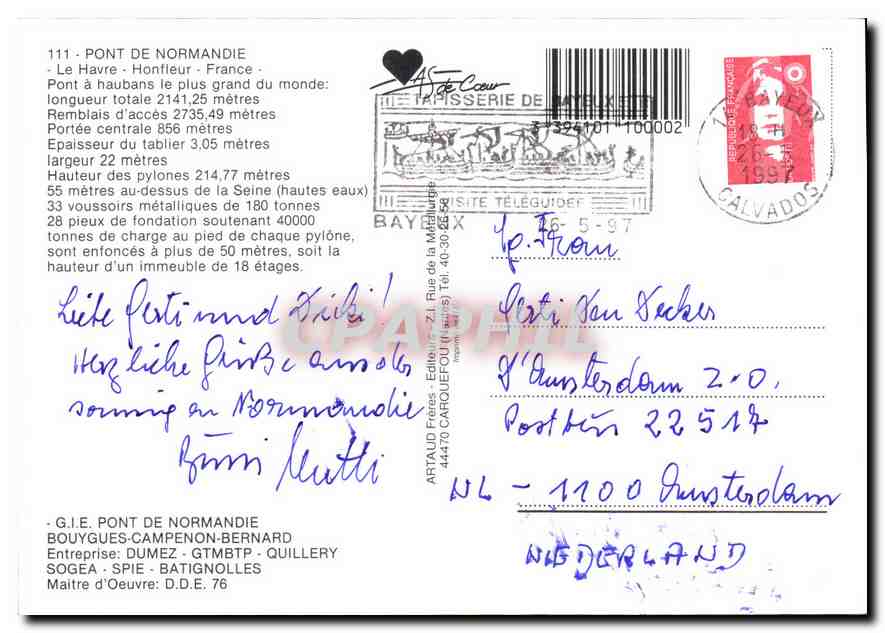 111 - PONT DE NORMANDIE
- Le Havre - Honfleur - France -
Pont à haubans le plus grand du monde:
longueur totale 2141,25 mètres
Remblais d'accès 2735,49 mètres
Portée centrale 856 mètres
Epaisseur du tablier 3,05 mètres
largeur 22 mètres
Hauteur des pylones 214,77 mètres
55 mètres au-dessus de la Seine (hautes eaux)
33 voussoirs métalliques de 180 tonnes
28 pieux de fondation soutenant 40000
tonnes de charge au pied de chaque pylône,
sont enfoncés à plus de 50 mètres, soit la
hauteur d'un immeuble de 18 étages.
Liebe Gerti und Dicki!
Herzliche Grüße aus der
sonnigen Normandie
Mutti
- G.I.E. PONT DE NORMANDIE
BOUYGUES-CAMPENON-BERNARD
Entreprise: DUMEZ - GTMBTP - QUILLERY
SOGEA - SPIE - BATIGNOLLES
Maitre d'Oeuvre: D.D.E. 76
As de Cœur
TAPISSERIE DE BAYEUX
VISITE TÉLÉGUIDÉE
BAYEUX 26-5-97
3 394101 100002
RÉPUBLIQUE FRANÇAISE
14 BAYEUX
18 H
26-5
1997
CALVADOS
ARTAUD Frères - Editeurs - Z.I. Rue de la Métallurgie
44470 CARQUEFOU (Nantes) Tél. 40-30-26-58
CPAPHIL
Gerti Van Decker
Amsterdam Z.O.
Postbus 22517
NL - 1100 Amsterdam
NIEDERLAND